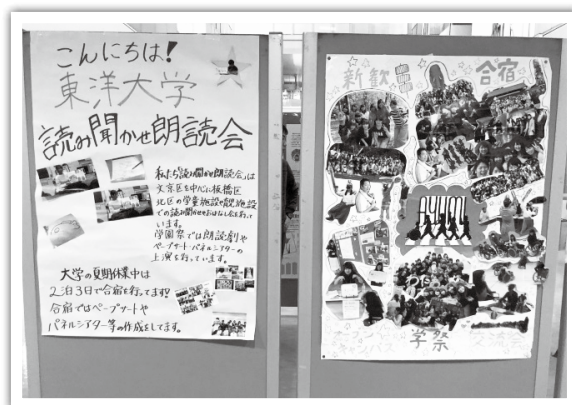 こんにちは!
東洋大学
読み聞かせ朗読会
私たち「読み聞かせ朗読会」は
文京区を中心に板橋区
北区の学童施設や
での読み聞かせやおはなし会を行って
います。
学園祭では朗読劇や
ペープサート・パネルシアターの
上演を行っています。
大学の夏期休業中は
2泊3日で合宿を行ってます!
合宿ではペープサートや
パネルシアター等の作成をしてます。
新歓
合宿
学祭